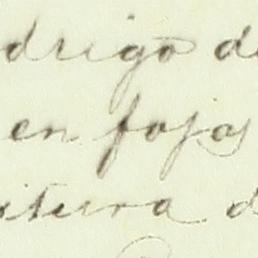 drigo de
en fojas
xtura d